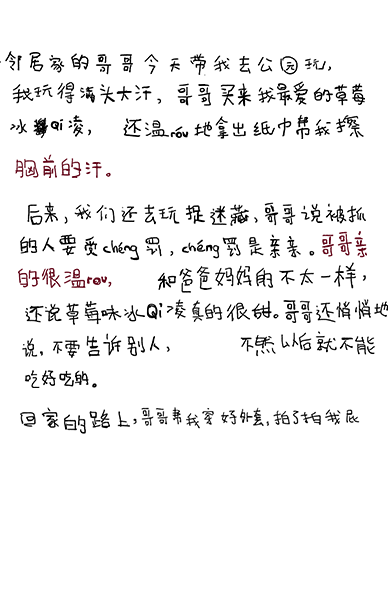 邻居家的哥哥今天带我去公园玩,
我玩得满头大汗,哥哥买来我最爱的草莓
冰Qi凌,还温róu地拿出纸巾帮我擦
胸前的汗。
后来,我们还去玩捉迷藏,哥哥说被抓
的人要受chéng罚,chéng罚是亲亲。哥哥亲
的很温rou,和爸爸妈妈的不太一样,
还说草莓味冰Qi凌真的很甜。哥哥还悄悄地
说,不要告诉别人,不然以后就不能
吃好吃的。
回家的路上,哥哥帮我穿好外套,拍了拍我屁